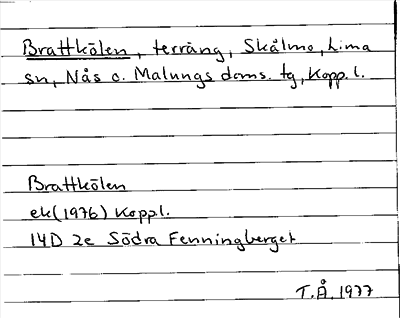 Brattkölen, terräng, Skålmo, Lima
sn, Nås o. Malungs doms. tg, Kopp. l.
Brattkölen
ek (1976) Koppl.
14D 2e Södra Fenningberget
T.Å. 1977